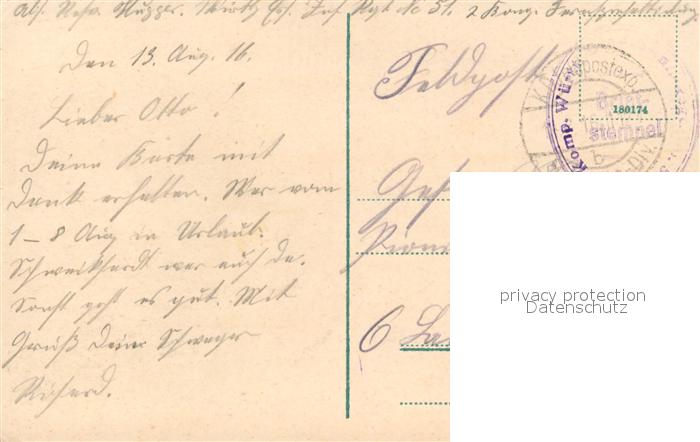 Abs. Res. Württ. Ers. Inf. Rgt No 51. 2 Komp.
Den 13. Aug. 16.
Lieber Otto!
Deine Karte mit
Dank erhalten. War vom
1-8 Aug in Urlaub.
Schweikhardt war auch da.
Sonst geht es gut. Mit
Gruß Deine Schwager
Richard.
Feldpost
Gef
Pion
6 La
Komp. Württ
postexp
Brief-
stempel
b
DIV.
180174
privacy protection
Datenschutz